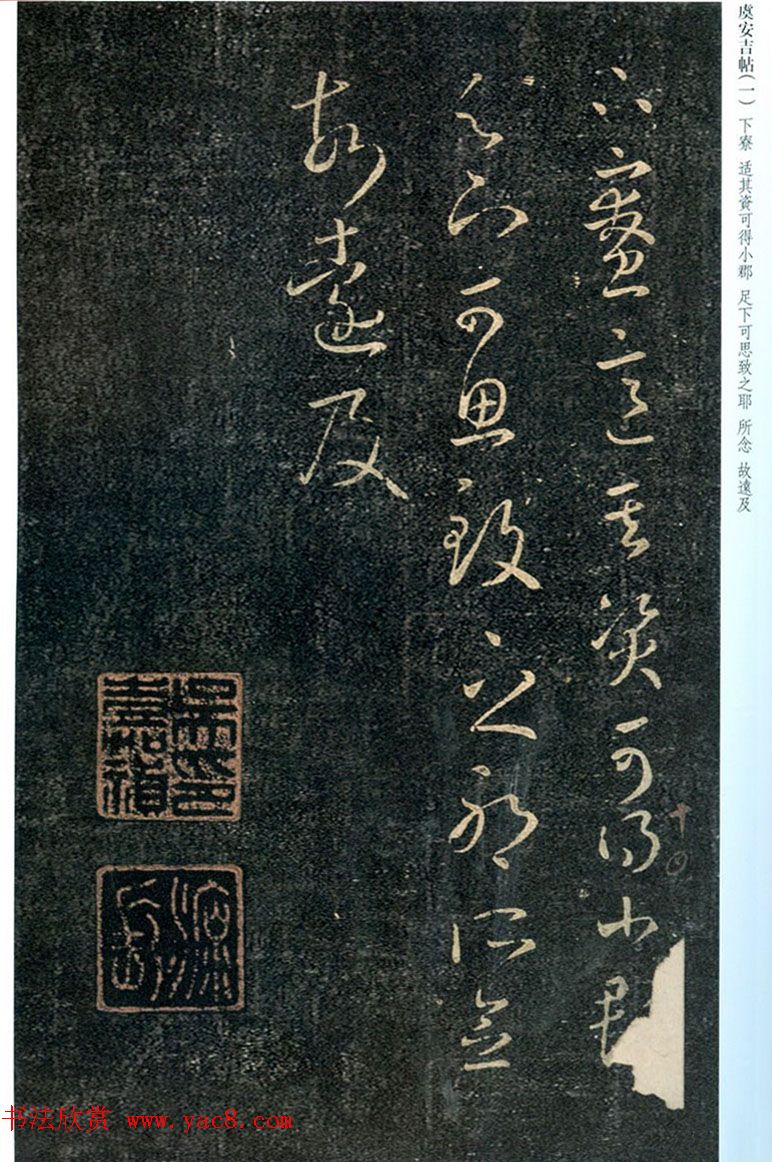 虞安吉帖（一） 下寮 适其資可得小郡 足下可思致之耶 所念 故遠及
下寮适其資可得小郡
足下可思致之耶所念
故遠及
十
书法欣赏 www.yac8.com